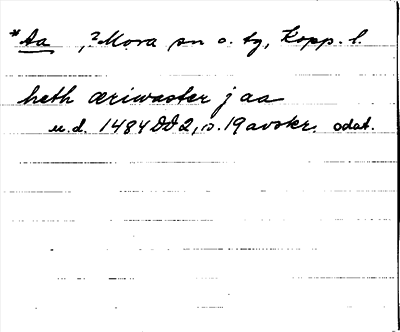 *Aa , ?Mora sn o. tg, Kopp. l.
heth æriwaster j aa
u.d. 1484 DD2, s. 19 avskr. odat.